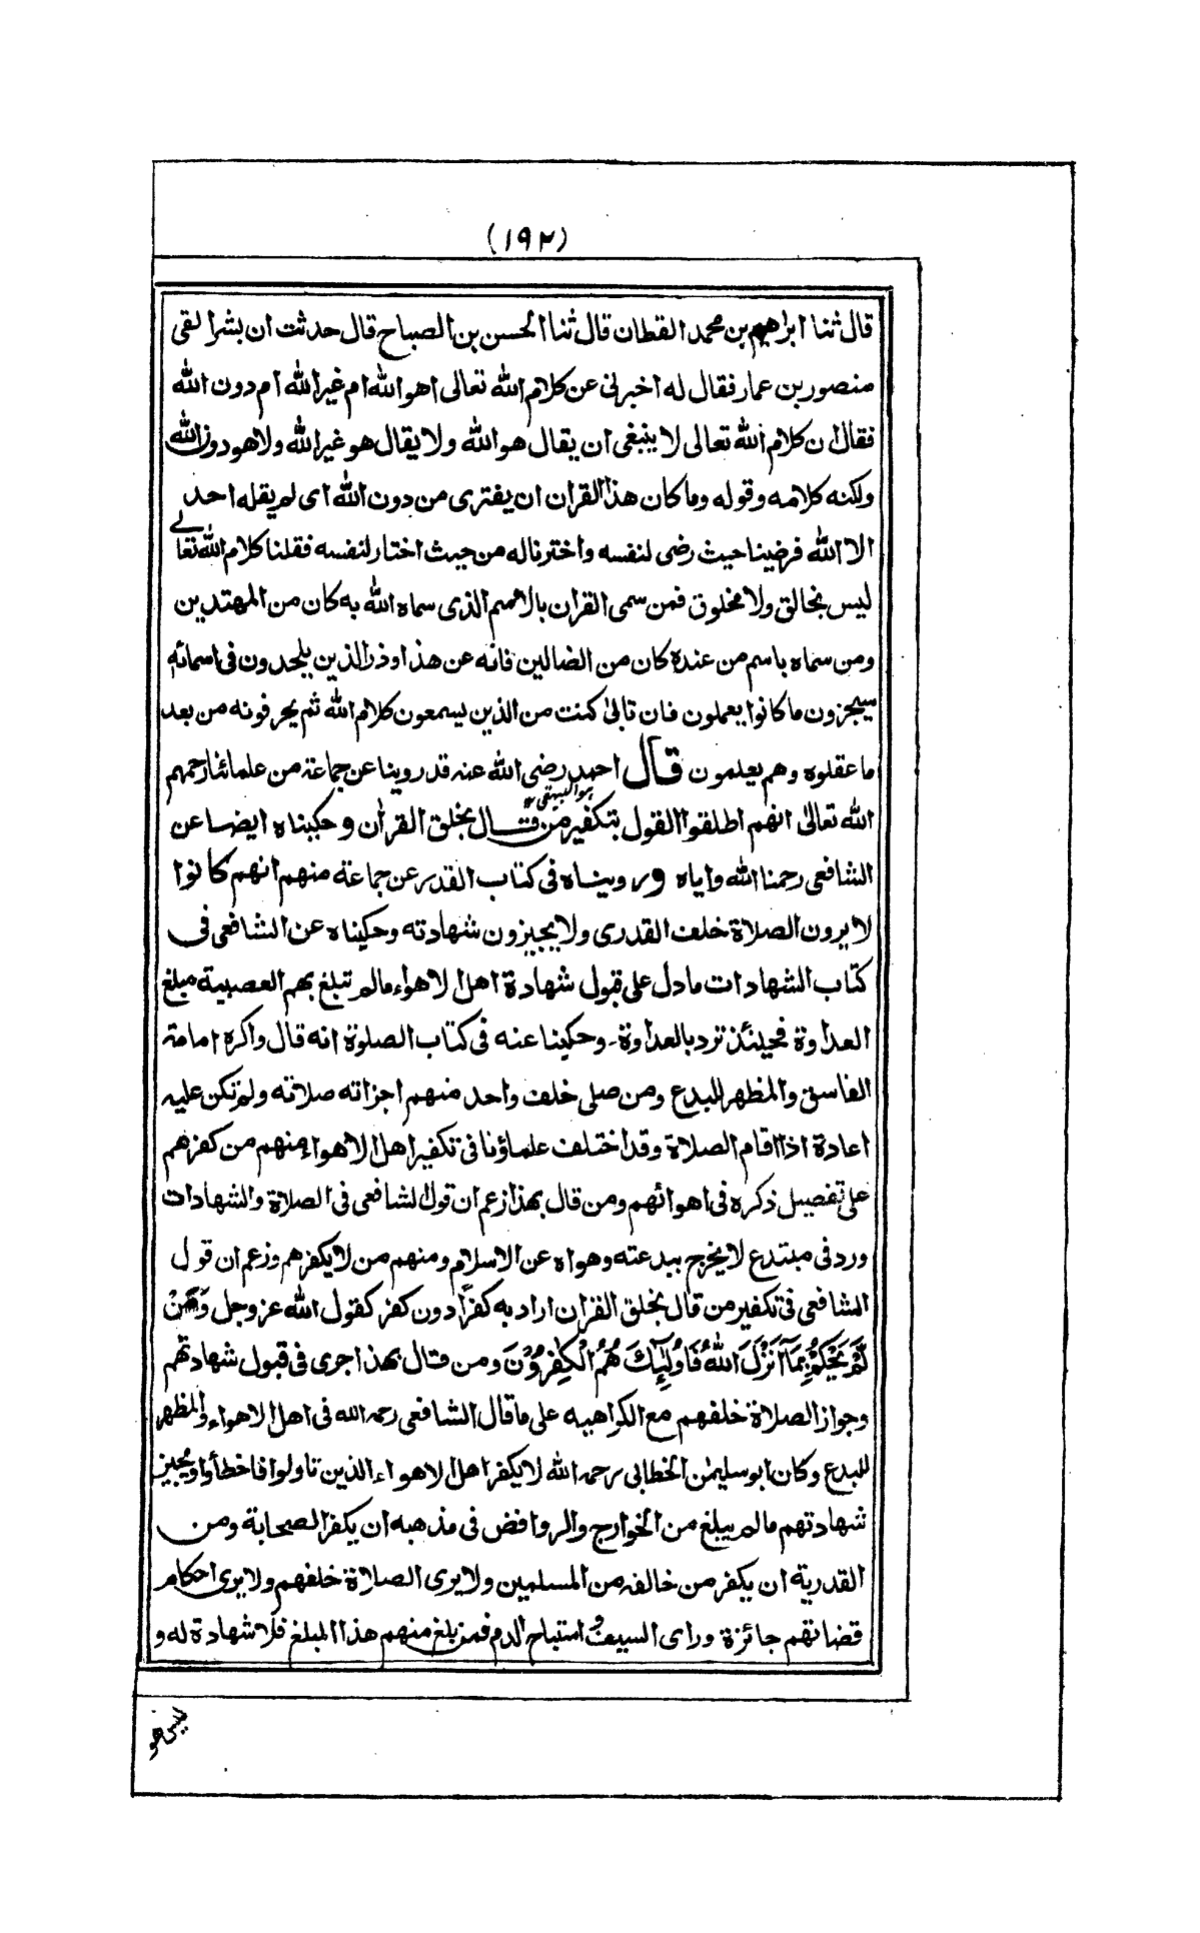 (١٩٢)
قال ثنا ابراهيم بن محمد القطان قال ثنا الحسن بن الصباح قال حدثت ان بشرا لقى
منصور بن عمار فقال له اخبرنى عن كلام الله تعالى اهو الله ام غير الله ام دون الله
فقال ان كلام الله تعالى لا ينبغى ان يقال هو الله ولا يقال هو غير الله ولا هو دون الله
ولكنه كلامه وقوله وما كان هذا القران ان يفترى من دون الله اى لم يقله احد
الا الله فرضينا حيث رضى لنفسه واخترنا له من حيث اختار لنفسه فقلنا كلام الله تعالے
ليس بخالق ولا مخلوق فمن سمى القران بالاسم الذى سماه الله به كان من المهتدين
ومن سماه باسم من عنده كان من الضالين فانه عن هذا وذر الذين يلحدون فى اسمائه
سيجزون ما كانوا يعملون فان تابى كنت من الذين يسمعون كلام الله ثم يحرفونه من بعد
ما عقلوه وهم يعلمون قال احمد رضى الله عنه قد روينا عن جماعة من علمائنا رحمهم
هو البيهقى
الله تعالى انهم اطلقوا القول بتكفير من قال بخلق القران وحكيناه ايضا عن
الشافعى رحمنا الله واياه ورويناه فى كتاب القدر عن جماعة منهم انهم كانوا
لا يرون الصلاة خلف القدرى ولا يجيزون شهادته وحكيناه عن الشافعى فى
كتاب الشهادات ما دل على قبول شهادة اهل الاهواء ما لم تبلغ بهم العصبية مبلغ
العداوة فحينئذ ترد بالعداوة۔ وحكينا عنه فى كتاب الصلوة انه قال واكره امامة
الفاسق والمظهر للبدع ومن صلى خلف واحد منهم اجزاته صلاته ولم تكن عليه
اعادة اذا اقام الصلاة وقد اختلف علماؤنا فى تكفير اهل الاهواء منهم من كفرهم
على تفصيل ذكره فى اهوائهم ومن قال بهذا زعم ان قول الشافعى فى الصلاة والشهادات
ورد فى مبتدع لا يخرج ببدعته وهواه عن الاسلام ومنهم من لا يكفرهم وزعم ان قول
الشافعى فى تكفير من قال بخلق القران اراد به كفرًا دون كفر كقول الله عز وجل وَمَنْ
لَّمْ يَحْكُمْ بِمَآ اَنْزَلَ اللهُ فَاُولٰٓئِكَ هُمُ الْكٰفِرُوْنَ ومن قال بهذا جرى فى قبول شهادتهم
وجواز الصلاة خلفهم مع الكراهيه على ما قال الشافعى رحمه الله فى اهل الاهواء والمظهر
للبدع وكان ابو سليمٰن الخطابى رحمه الله لا يكفر اهل الاهواء الذين تاولوا فاخطأوا ويجيز
شهادتهم ما لم يبلغ من الخوارج والروافض فى مذهبه ان يكفر الصحابة ومن
القدرية ان يكفر من خالفه من المسلمين ولا يرى الصلاة خلفهم ولا يرى احكام
قضاتهم جائزة وراى السيف و استباح الدم فمن بلغ منهم هذا المبلغ فلا شهادة له و
ليس هو